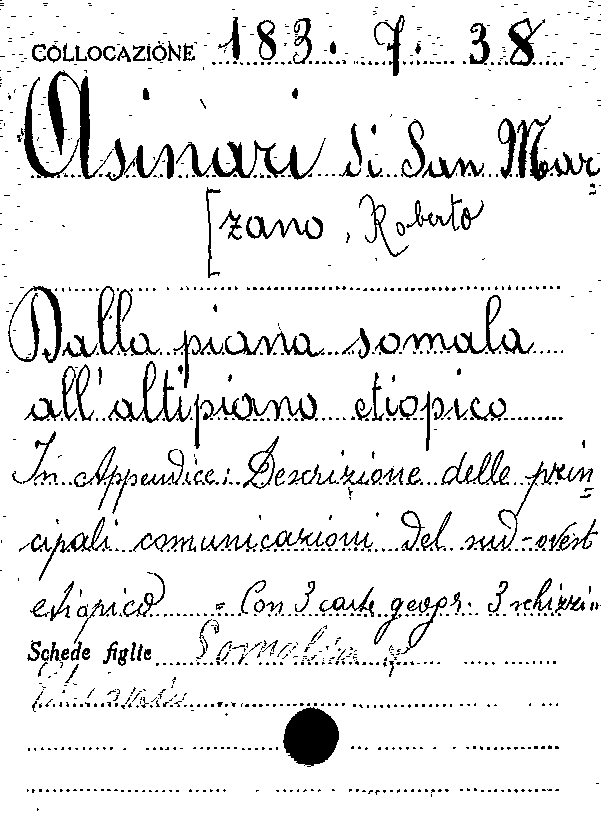 COLLOCAZIONE 183. 7. 38
Asinari di San Mar=
[zano, Roberto
Dalla piana somala
all'altipiano etiopico
In Appendice: Descrizione delle prin=
cipali comunicazioni del sud-ovest
etiopico = Con 3 carte geogr. 3 schizzi
Schede figlie Somalia